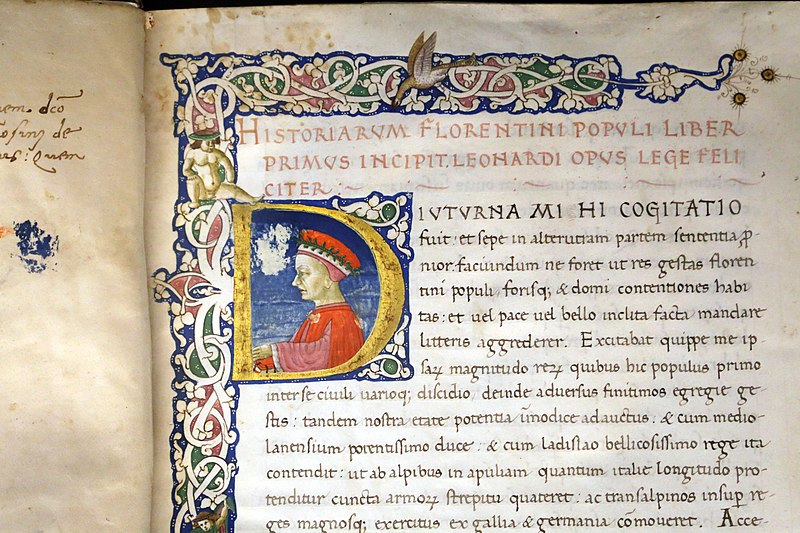 uem dco
osing de
us: Quem
HISTORIARVM FLORENTINI POPVLI LIBER
PRIMVS INCIPIT. LEONARDI OPVS LEGE FELI
CITER:
DIVTVRNA MI HI COGITATIO
fuit: et sepe in alterutram partem sententia ꝓ
nior faciundum ne foret ut res gestas floren
tini populi, forisq; & domi contentiones habi
tas: et uel pace uel bello inclita facta mandare
litteris aggrederer. Excitabat quippe me ip
saꝝ magnitudo reꝝ quibus hic populus primo
inter se ciuili uarioq; discidio, deinde aduersus finitimos egregie ge
stis: tandem nostra etate potentia īmodice adauctus: & cum medio-
lanensium potentissimo duce: & cum ladislao bellicosissimo rege ita
contendit: ut ab alpibus in apuliam quantum italie longitudo pro-
tenditur cuncta armoꝝ strepitu quateret: ac transalpinos insuꝑ re-
ges magnosq; exercitus ex gallia & germania cōmoueret. Acce-